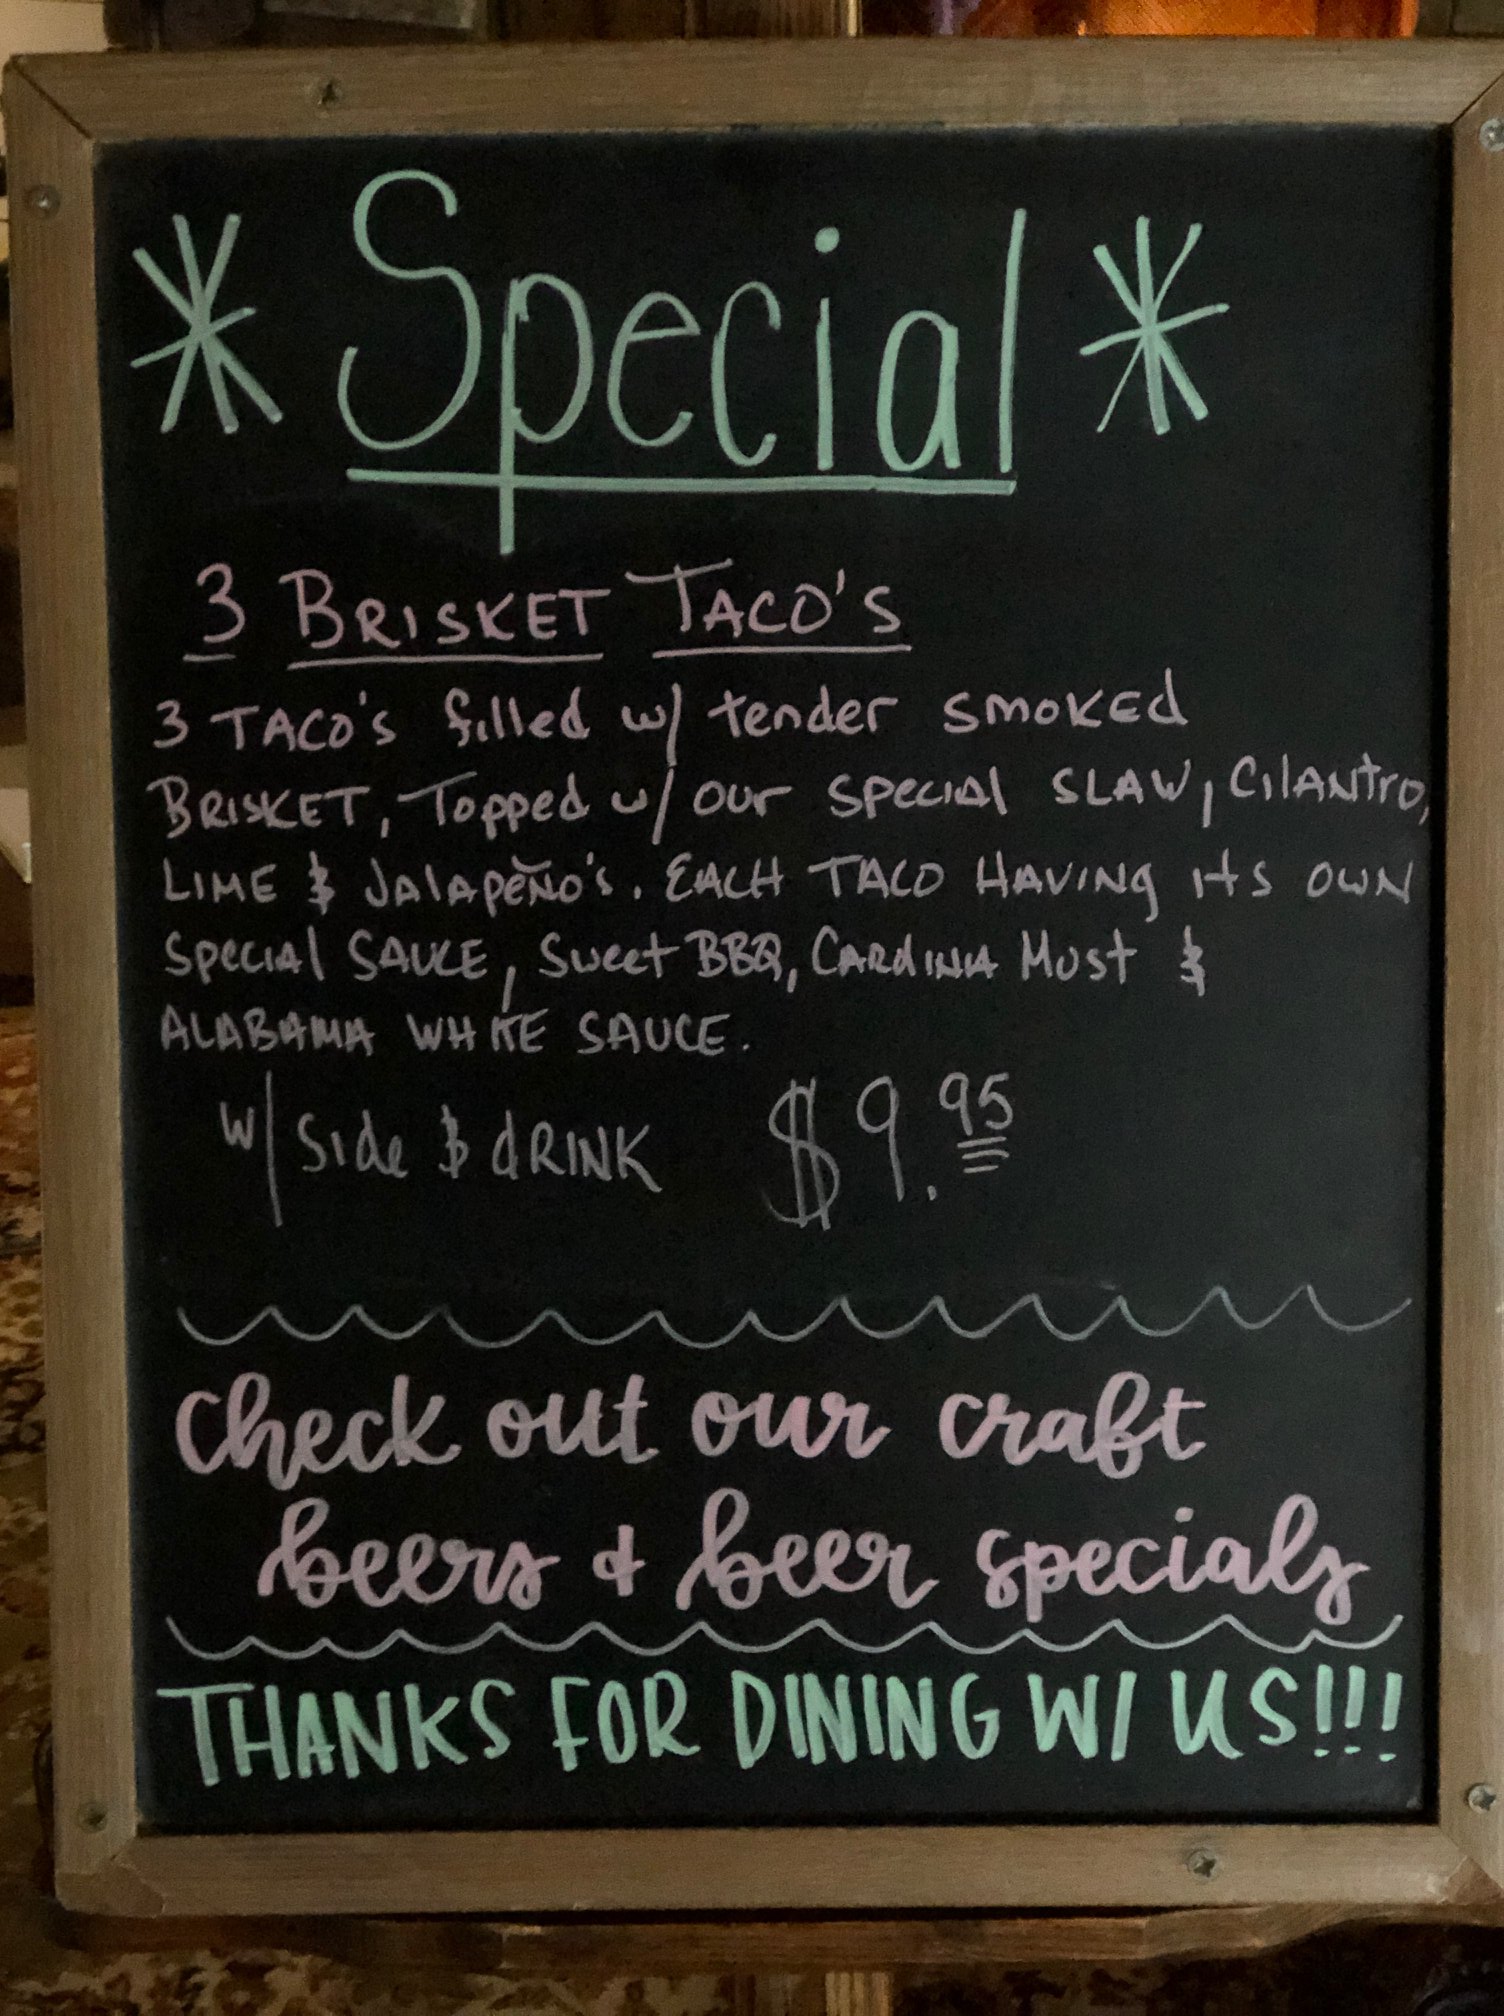 * Special *
3 BRISKET TACO'S
3 TACO's filled w/ tender smoked
BRISKET, Topped w/ our special SLAW, Cilantro,
LIME & JALAPEÑO's. EACH TACO HAVING its OWN
special SAUCE, Sweet BBQ, CAROlINA Must &
ALABAMA WHITE SAUCE.
w/ side & dRINK $9.95
check out our craft
beers & beer specials
THANKS FOR DINING W/ US!!!